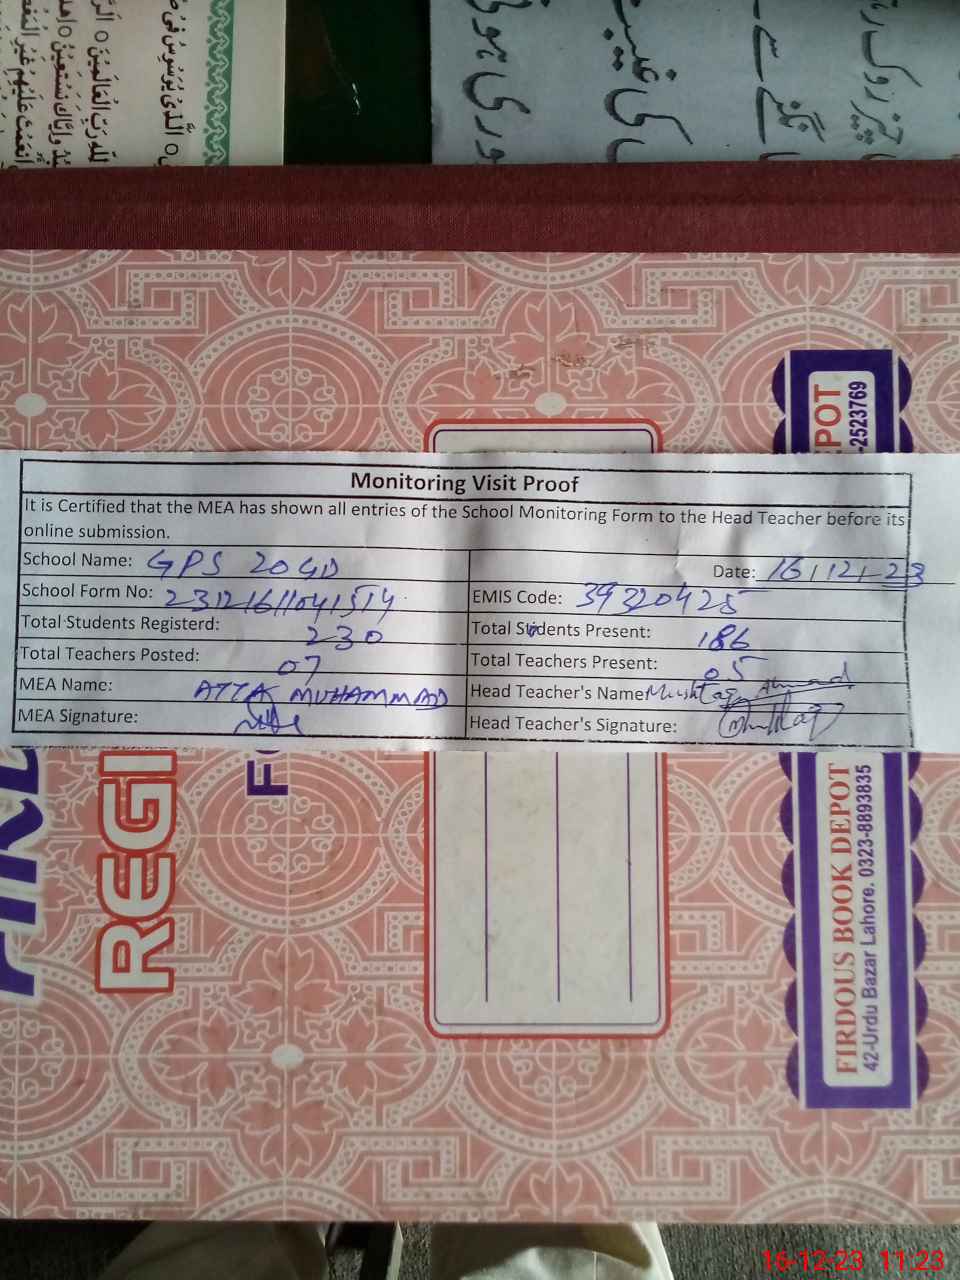 الَّذِىْ يُوَسْوِسُ فِىْ
ہو ری
کی غیبت
نگلنے سے
چیز روک
Monitoring Visit Proof
It is Certified that the MEA has shown all entries of the School Monitoring Form to the Head Teacher before its
online submission.
School Name: GPS 20GD
Date: 16/12/23
School Form No: 23121611041514
EMIS Code: 39320425
Total Students Registerd: 230
Total Students Present: 186
Total Teachers Posted: 07
Total Teachers Present: 05
MEA Name: ATTA MUHAMMAD
Head Teacher's Name Mushtaq Ahmad
MEA Signature:
Head Teacher's Signature: Mushtaq
REGI
POT
-2523769
FIRDOUS BOOK DEPOT
42-Urdu Bazar Lahore. 0323-8893835
16-12-23 11:23